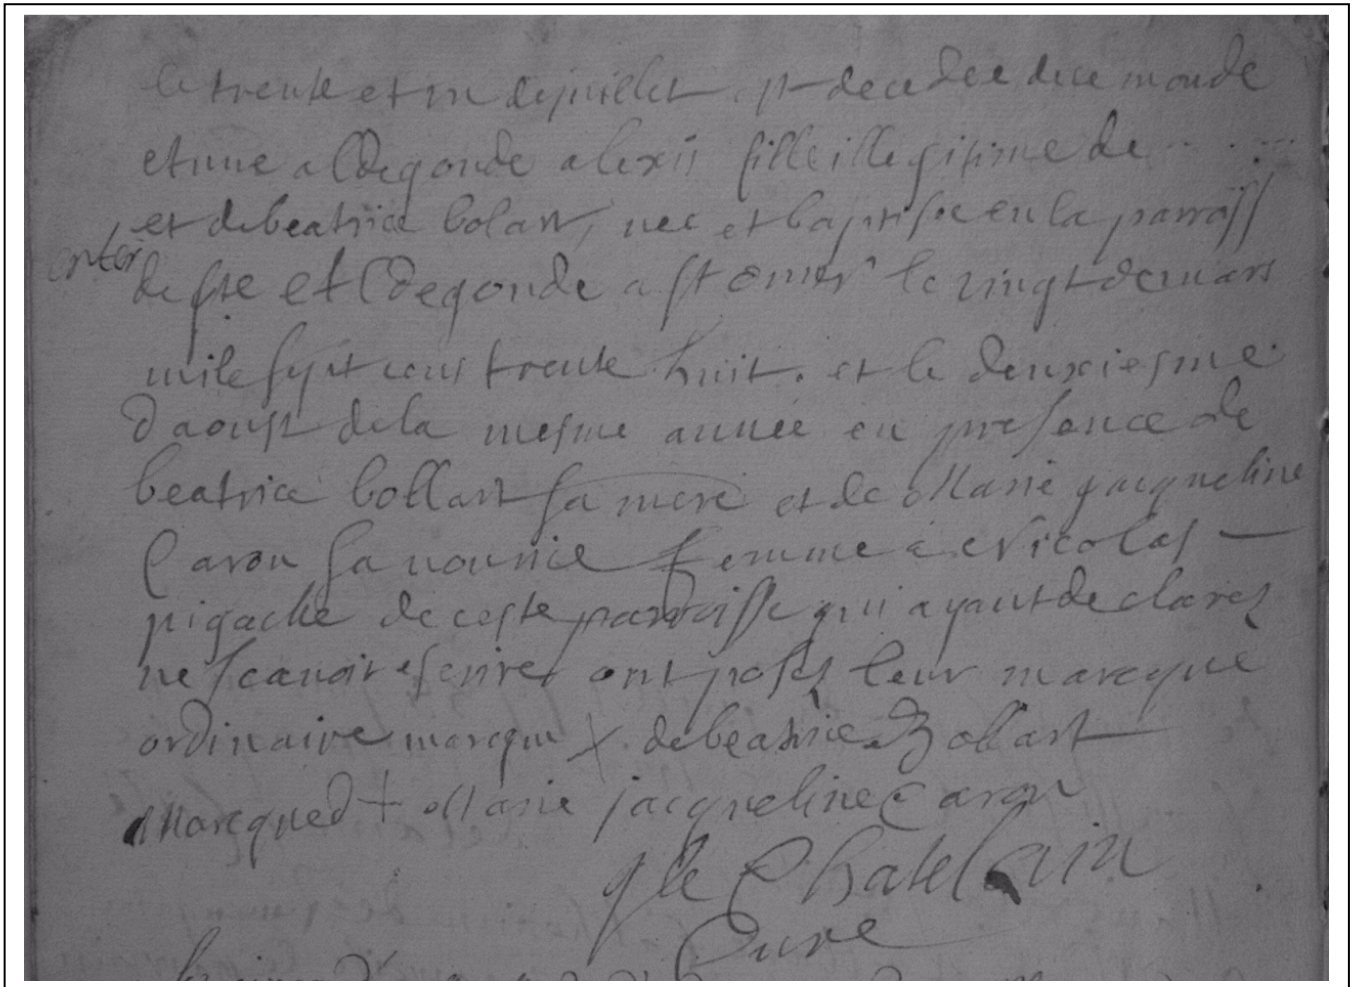 le trente et un de juillet est decedee de ce monde
et une alldegonde alexis fille illegitime de
et de beatrice bolart, nee et baptisee en la parroiss
de ste elldegonde a st omer le vingt de mars
mile sept cens trente huit. et le deuxiesme
d'aoust de la mesme année en presence de
beatrice bollart sa mere et de Marie jacqueline
Caron sa nourice femme a Nicolas
pigache de ceste parroisse qui ayant declarez
ne scavoir escrire ont posez leur marcque
ordinaire marcque X de beatrice Bollart
Marcque d + Marie jacqueline Caron
g le Chatelain
Curé